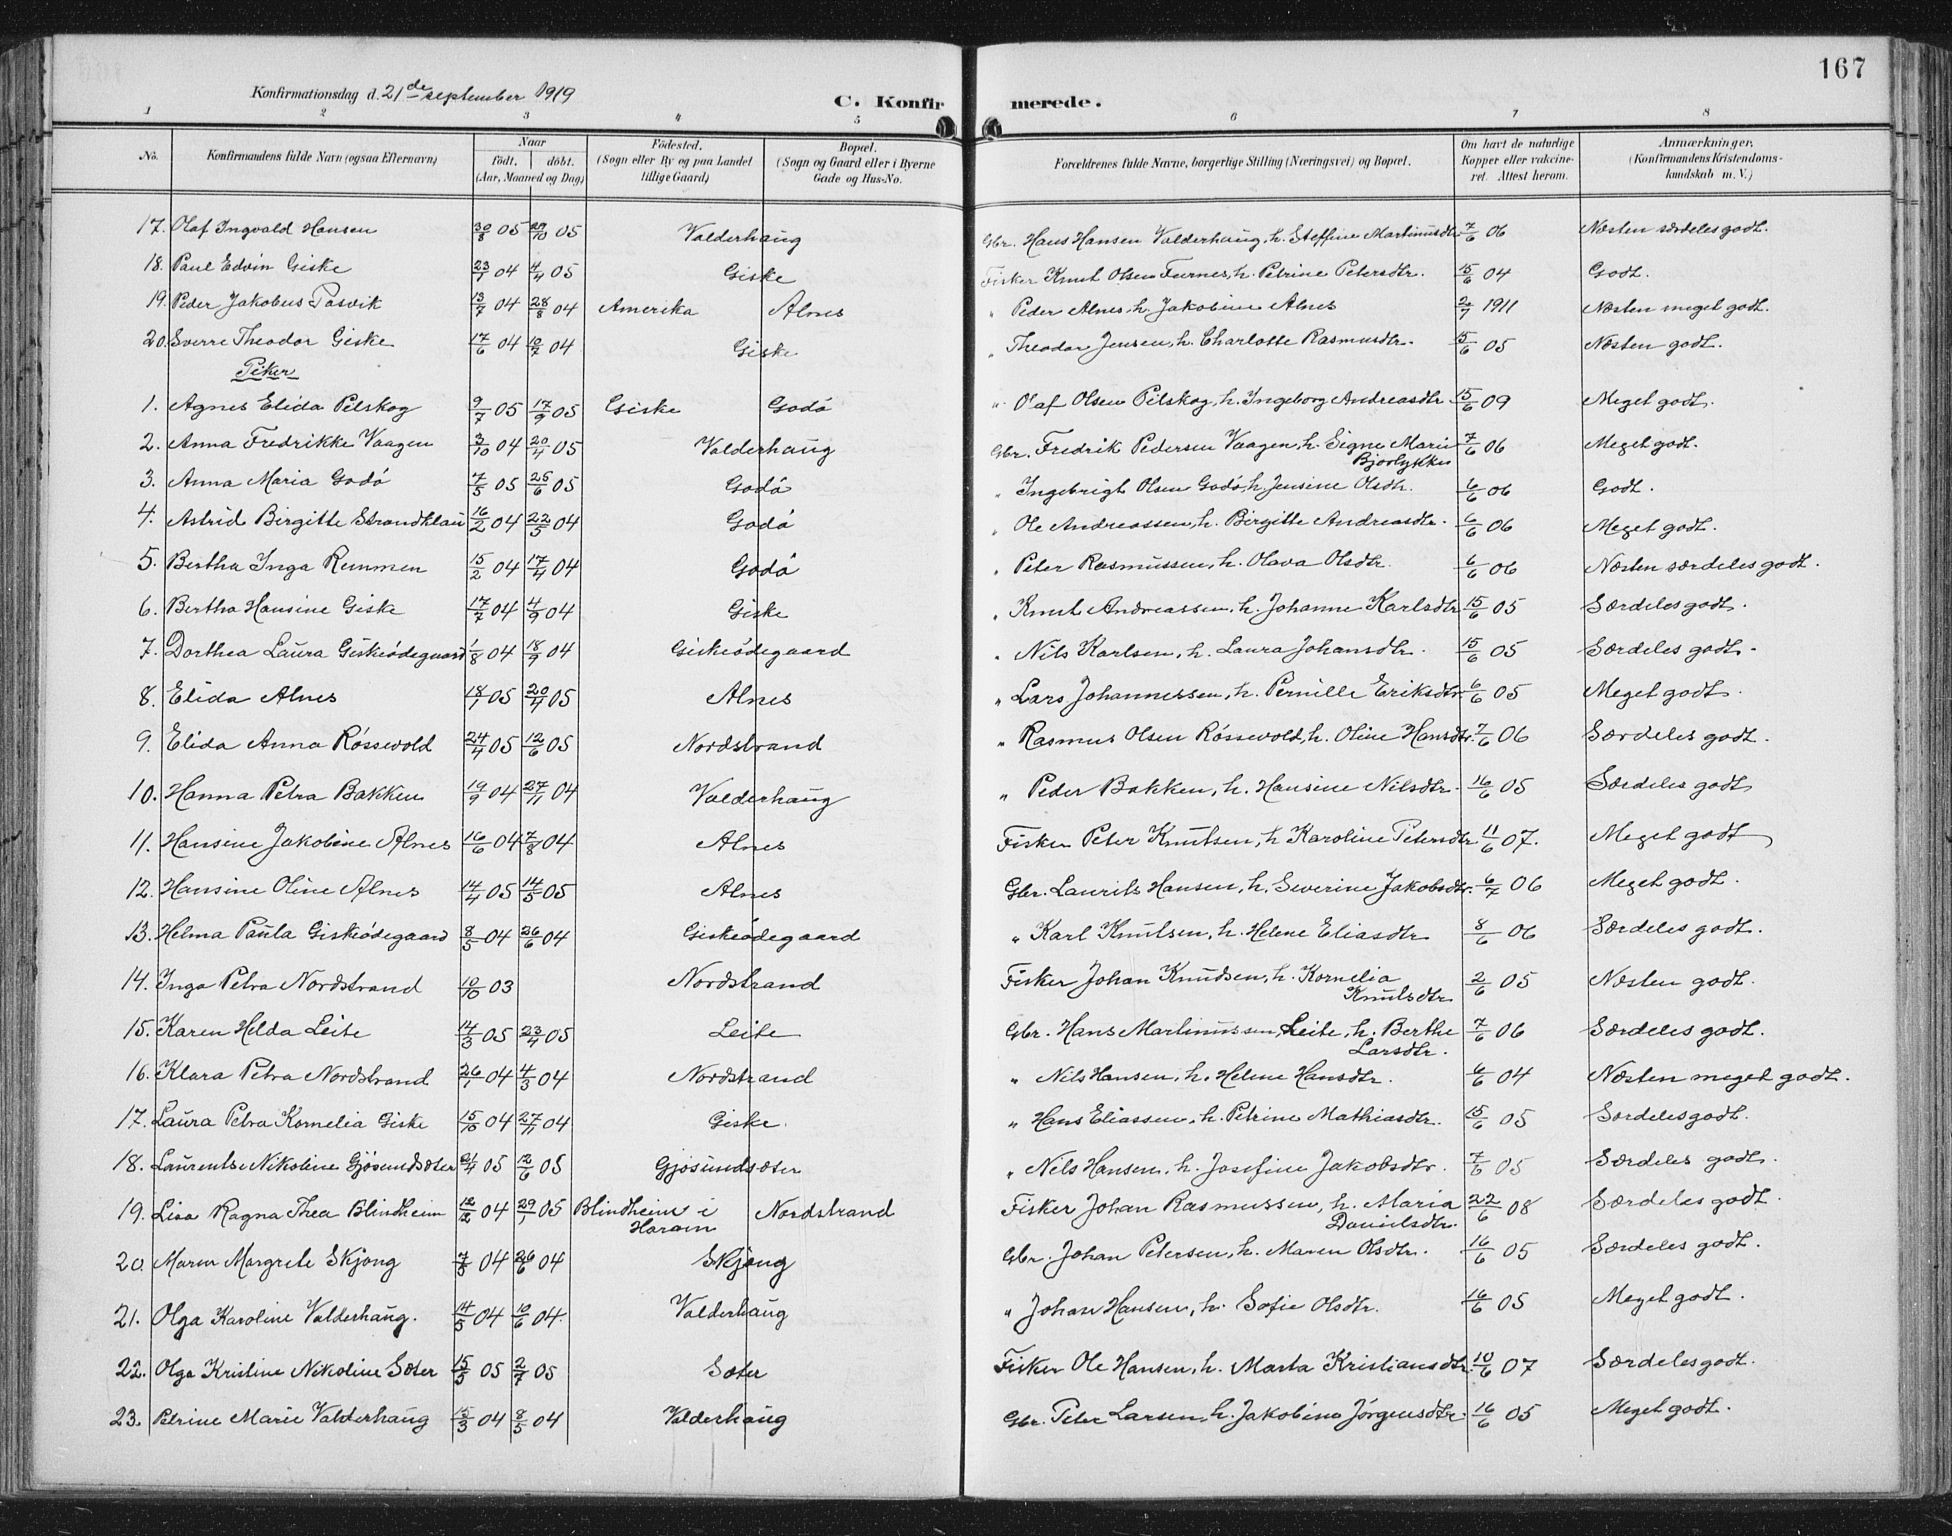 167
Konfirmationsdag d. 21de september 1919
C. Konfirmerede.
1 2 3 4 5 6 7 8
No. | Konfirmandens fulde Navn (ogsaa Efternavn) | Naar födt. döbt. (Aar, Maaned og Dag) | Födested. (Sogn eller By og paa Landet tillige Gaard) | Bopæl. (Sogn og Gaard eller i Byerne Gade og Hus-No. | Forældrenes fulde Navne, borgerlige Stilling (Næringsvei) og Bopæl. | Om havt de naturlige Kopper eller vakcineret. Attest herom. | Anmærkninger. (Konfirmandens Kristendomskundskab m. V.)
17. Olaf Ingvald Hansen 30/8 05 29/10 05 Valderhaug Gbr. Hans Hansen Valderhaug, h. Steffine Martinusdtr. 7/6 06 Næsten særdeles godt.
18. Paul Edvin Giske 23/1 04 4/4 05 Giske Fisker Knut Olsen Furnes, h. Petrine Petersdtr. 15/6 04 Godt.
19. Peder Jakobus Tasvik 13/7 04 28/8 04 Amerika Alnes " Peder Alnes, h. Jakobine Alnes 1911 Næsten meget godt.
20. Sverre Theodor Giske 17/6 04 10/7 04 Giske " Theodor Jensen, h. Charlotte Rasmusdtr. 15/6 05 Næsten godt.
Piker
1. Agnes Elida Pilskog 9/7 05 17/9 05 Giske Godö " Olaf Olsen Pilskog, h. Ingeborg Andreasdtr. 15/6 09 Meget godt.
2. Anna Fredrikke Vaagen 3/10 04 20/4 05 Valderhaug Gbr. Fredrik Pedersen Vaagen, h. Signe Marie Bjørlykke 7/6 06 Meget godt.
3. Anna Maria Godö 7/5 05 25/6 05 Godö " Ingebrigt Olsen Godö, h. Jensine Olsdtr. 6/6 06 Godt.
4. Astrid Birgitte Strandklau 16/2 04 22/5 04 Godö " Ole Andreassen, h. Birgitte Andreasdtr. 6/6 06 Meget godt.
5. Bertha Inga Remmen 15/2 04 17/4 04 Godö " Peter Rasmussen, h. Olava Olsdtr. 6/6 06 Næsten særdeles godt.
6. Bertha Hansine Giske 17/7 04 4/9 04 Giske " Knut Andreassen, h. Johanne Karlsdtr. 15/6 05 Særdeles godt.
7. Dorthea Laura Giskeödegaard 1/8 04 18/9 04 Giskeödegaard " Nils Karlsen, h. Laura Johansdtr. 15/6 05 Særdeles godt.
8. Elida Alnes 18/1 05 20/4 05 Alnes " Lars Johannessen, h. Pernille Eriksdtr. 6/6 05 Meget godt.
9. Elida Anna Rössevold 24/4 05 12/6 05 Nordstrand " Rasmus Olsen Rössevold, h. Oline Hansdtr. 7/6 06 Særdeles godt.
10. Hanna Petra Bakken 19/9 04 27/11 04 Valderhaug " Peder Bakken, h. Hansine Nilsdtr. 16/6 05 Særdeles godt
11. Hansine Jakobine Alnes 16/6 04 7/8 04 Alnes Fisker Peter Knutsen, h. Karoline Petersdtr. 11/6 07. Meget godt
12. Hansine Oline Alnes 14/4 05 14/5 05 Alnes Gbr. Laurits Hansen, h. Severine Jakobsdtr. 6/7 06 Meget godt.
13. Helma Paula Giskeödegaard 8/5 04 26/6 04 Giskeödegaard " Karl Knutsen, h. Helene Eliasdtr 8/6 06 Særdeles godt.
14. Inga Petra Nordstrand 10/10 03 Nordstrand Fisker Johan Knudsen, h. Kornelia Knutsdtr. 2/6 05 Næsten godt.
15. Karen Helda Leite 14/3 05 23/4 05 Leite Gbr. Hans Martinussen Leite, h. Berthe Larsdtr. 7/6 06 Særdeles godt.
16. Klara Petra Nordstrand 26/1 04 4/3 04 Nordstrand " Nils Hansen, h. Helene Hansdtr. 6/6 04 Næsten meget godt.
17. Laura Petra Kornelia Giske 15/10 04 27/11 04 Giske. " Hans Eliassen, h. Petrine Mathiasdtr. 15/6 05 Særdeles godt.
18. Laurentse Nikoline Gjösundsæter 21/4 05 12/6 05 Gjösundsæter " Nils Hansen, h. Josefine Jakobsdtr. 7/6 05 Særdeles godt.
19. Lisa Ragna Thea Blindheim 12/2 04 29/1 05 Blindheim i Haram Nordstrand Fisker Johan Rasmussen, h. Maria Danielsdtr. 22/6 08 Særdeles godt.
20. Maren Margrete Skjong 7/5 04 26/6 04 Skjong Gbr. Johan Petersen, h. Maren Olsdtr. 16/6 05 Særdeles godt.
21. Olga Karoline Valderhaug. 14/5 04 10/6 04. Valderhaug " Johan Hansen, h. Sofie Olsdtr. 16/6 05 Meget godt.
22. Olga Kristine Nikoline Sæter 15/5 05 2/7 05 Sæter Fisker Ole Hansen, h. Marta Kristiansdtr. 10/6 07 Særdeles godt.
23. Petrine Marie Valderhaug 15/3 04 8/5 04 Valderhaug Gbr. Peter Larsen, h. Jakobine Jörgensdtr. 16/6 05 Meget godt.